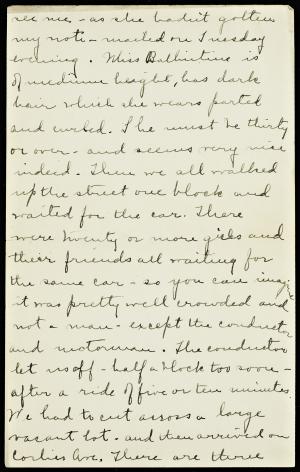 see me - as she hadn't gotten
my note - mailed on Tuesday
evening. Miss Ballintine is
of medium height, has dark
hair which she wears parted
and curled. She must be thirty
or over - and seems very nice
indeed. Then we all walked
up the street one block and
waited for the car. There
were twenty or more girls and
their friends all waiting for
the same car - so you can imagine
it was pretty well crowded and
not a man - except the conductor
and motorman. The conductor
let us off - half a block too soon -
after a ride of five or ten minutes.
We had to cut across a large
vacant lot - and then arrived on
Corlies Ave. There are three